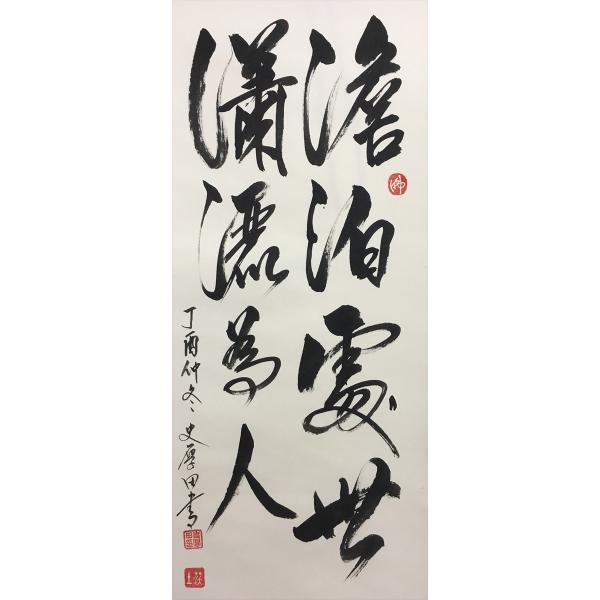 澹泊處世
瀟灑為人
丁酉仲冬史厚田書